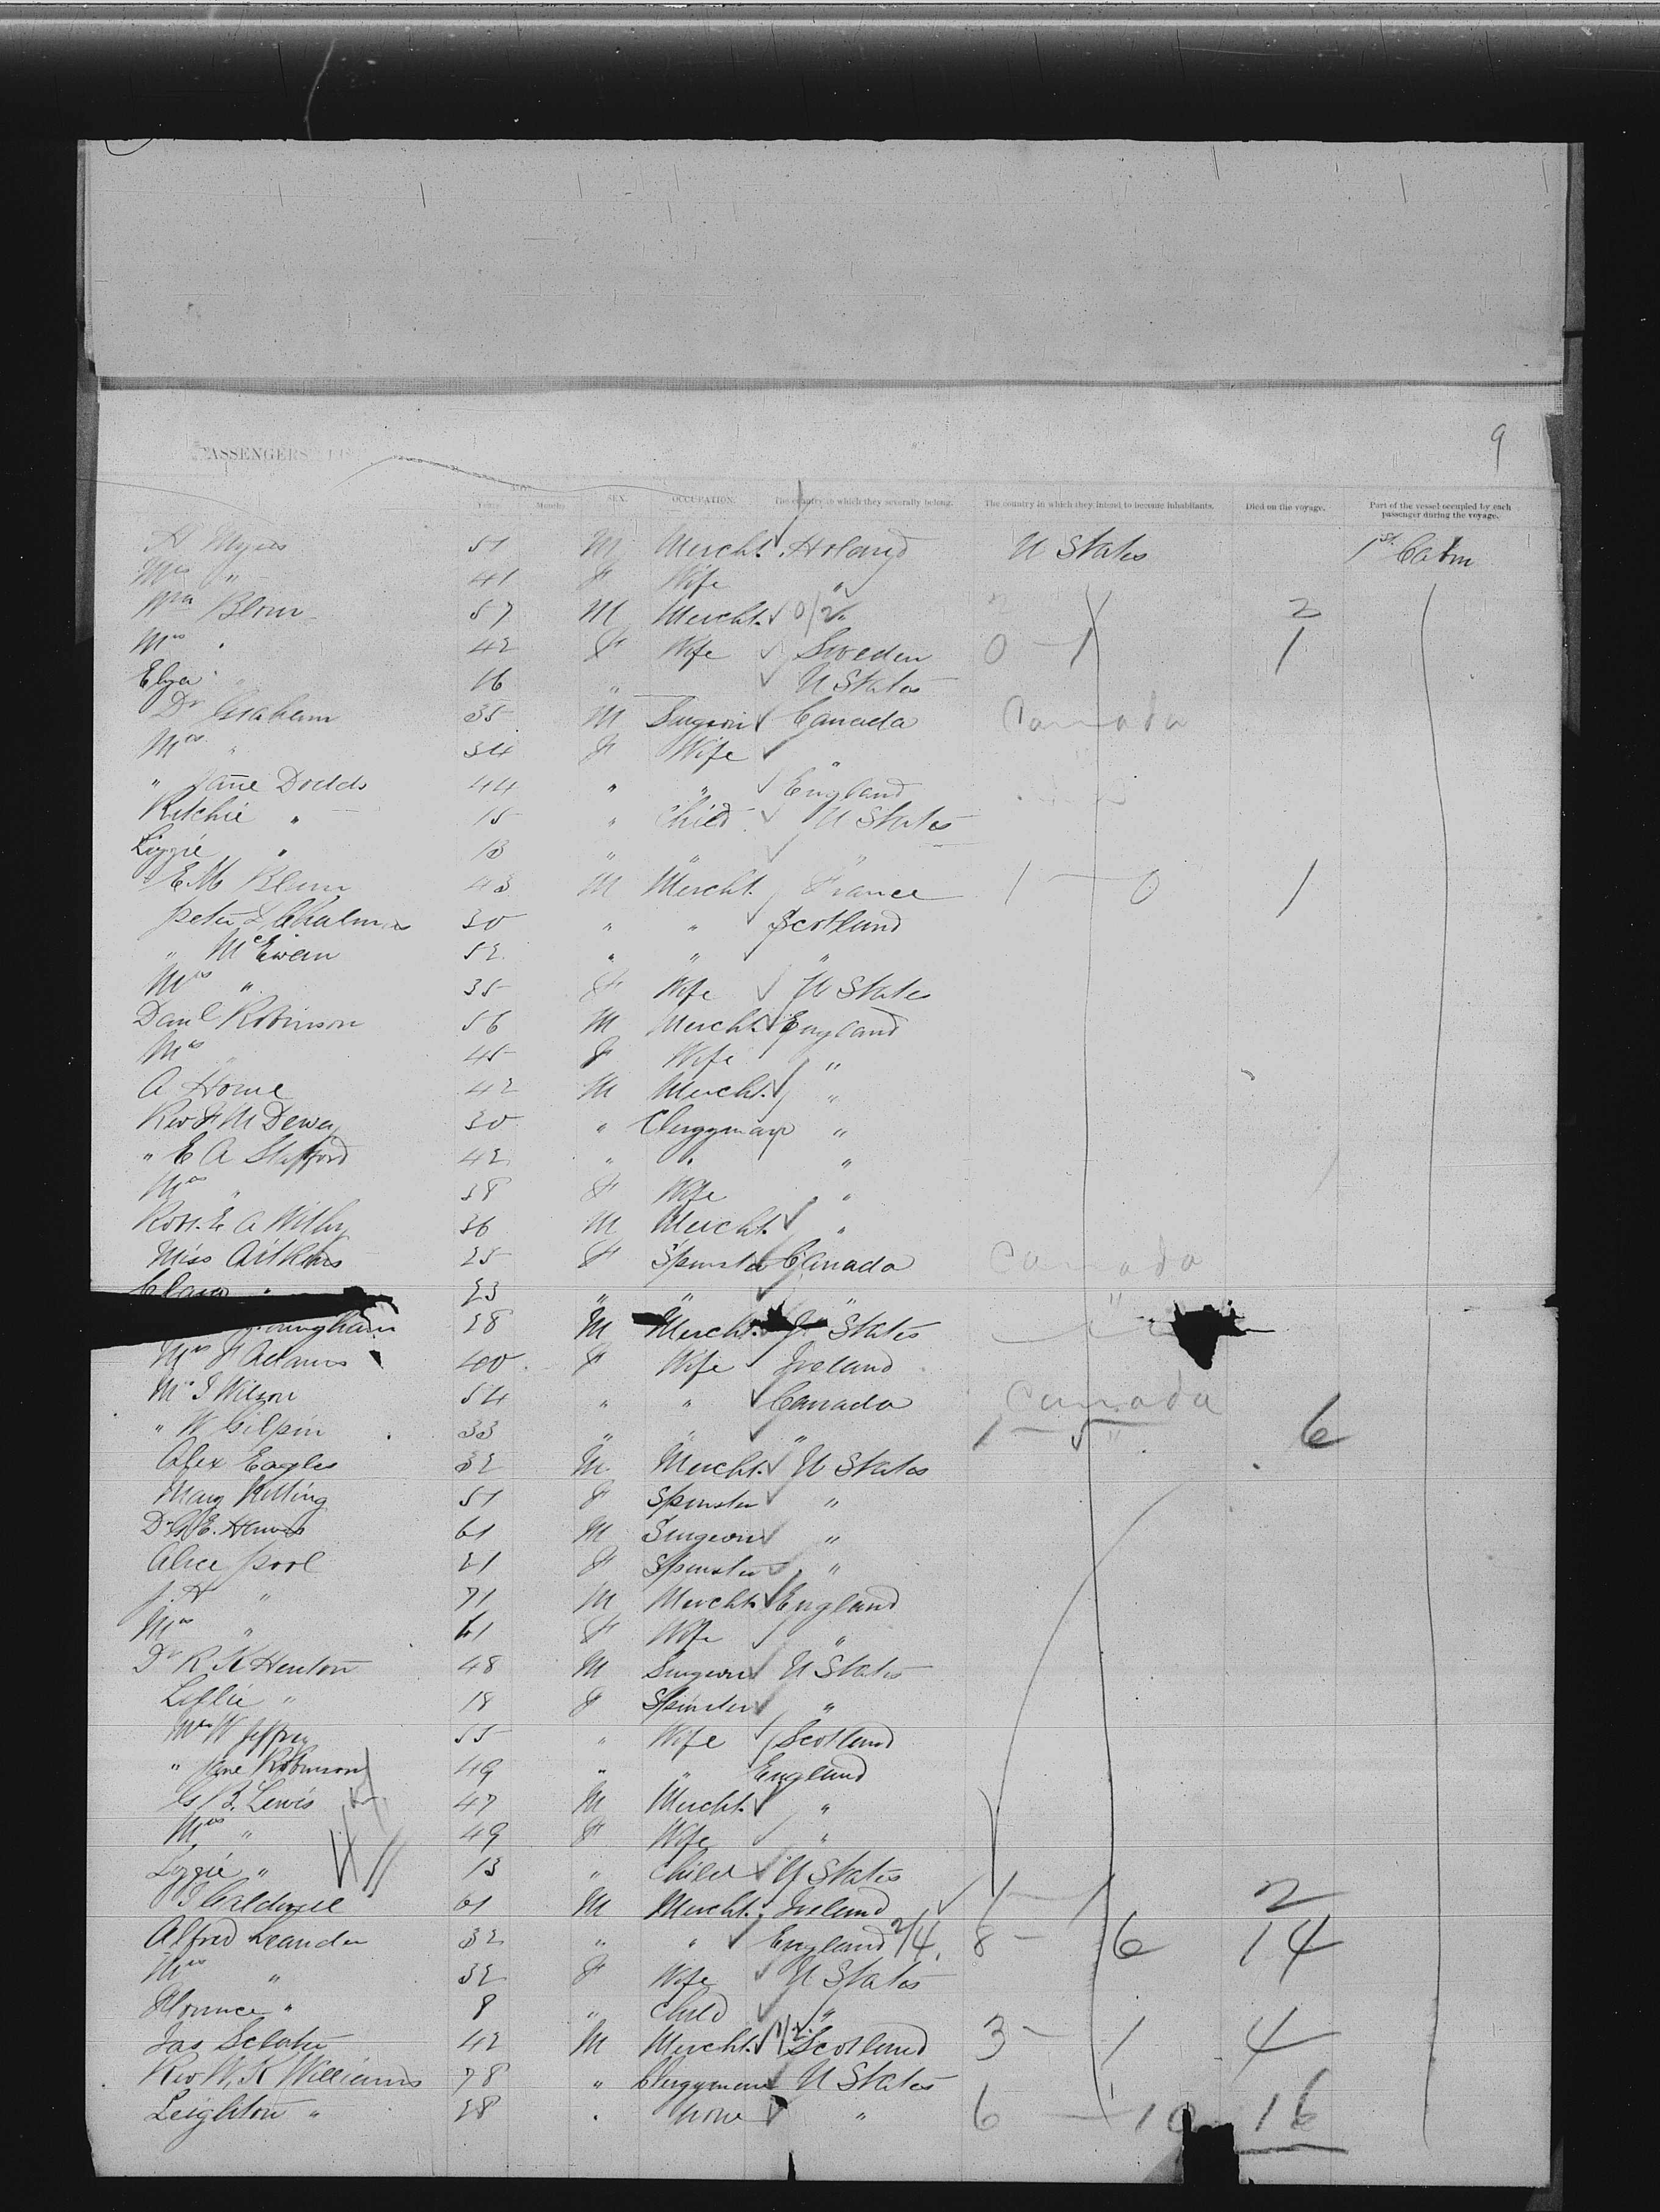 9
PASSENGERS
Years. Months. SEX. OCCUPATION. The country in which they severally belong. The country in which they intend to become inhabitants. Died on the voyage. Part of the vessel occupied by each passenger during the voyage.
H Myers 51 M Mercht. Holand U States 1st Cabin
Mrs " 41 F Wife "
Wm Blom 57 M Mercht. 0/2 " 2
Mrs " 42 F Wife Sweden 0 - 1 1
Eliza " 16 " U States
Dr Graham 35 M Surgeon Canada Canada
Mrs " 34 F Wife "
" Jane Dodds 44 " " England
Ritchie " 15 " Child U States
Lizzie " 13 " " "
E M Blum 43 M Mercht. France 1 - 0 1
Peter L Chalmers 30 " " Scotland
" McEwan 52 " " "
Mrs " 35 F Wife U States
Danl Robinson 56 M Mercht. England
Mrs " 45 F Wife "
A Horne 42 M Mercht. "
Rev F M Dewey 30 " Clergyman "
" E A Stafford 42 " " "
Mrs " 38 F Wife "
Robt. E A Wilby 36 M Mercht. "
Miss Aitkins 25 F Spinster Canada Canada
Clara " 23 " " " "
28 M Mercht. U States
Mrs F Adams 40 F Wife Ireland
Mrs J Wilson 54 " " Canada Canada
" W Gilpin 33 " " " 1 5 " 6
Alex Eagles 32 M Mercht. U States
Mary Kitting 51 F Spinster "
Dr G E. 61 M Surgeon "
Alice Pool 21 F Spinster "
J. H " 71 M Mercht. England
Mrs " 61 F Wife "
Dr R K Henton 48 M Surgeon U States
Lillie " 18 F Spinster "
Mrs W Jeffrey 55 " Wife Scotland
" Jane Robinson 49 " " England
G B. Lewis 47 M Mercht. "
Mrs " 49 F Wife "
Lizzie " 13 " Child U States
J Caldwell 61 M Mercht. Ireland 1 - 1 2
Alfred Leander 32 " " England 2/4 8 - 6 14
Mrs " 32 F Wife U States
Florence " 8 " Child "
Jas Sclater 42 M Mercht. 1/2 Scotland 3 - 1 4
Rev W. K Williams 78 " Clergyman U States
Leighton " 28 " None " 6 - 10 16